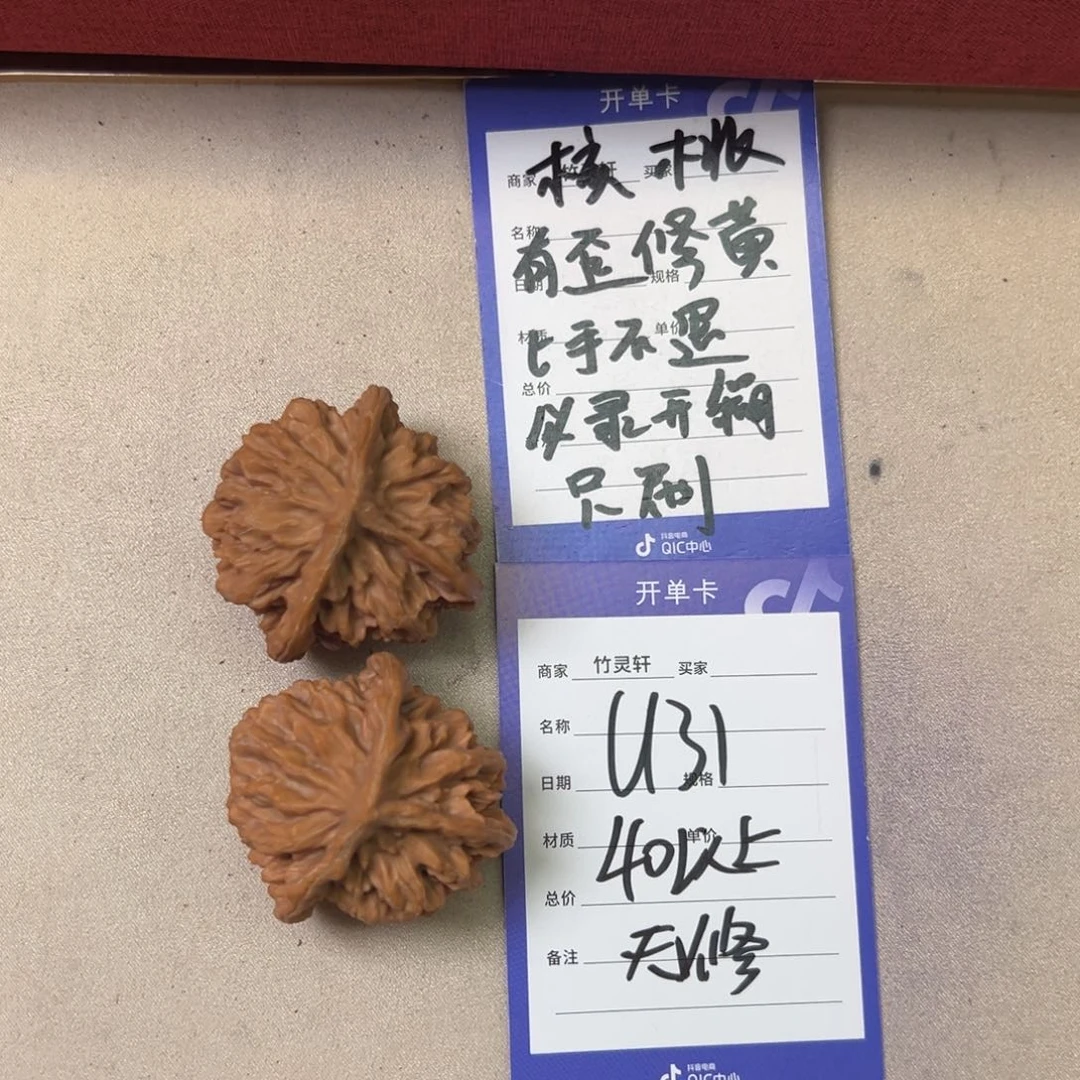 开单卡
核桃
商家 竹灵轩 买家
名称
有歪修黄
日期 规格
材质 单价
上手不退
总价
仅录开箱
只刷
抖音电商
QIC中心
开单卡
商家 竹灵轩 买家
名称
U31
日期 规格
材质 单价
40以上
总价
备注 无修
抖音电商
QIC中心